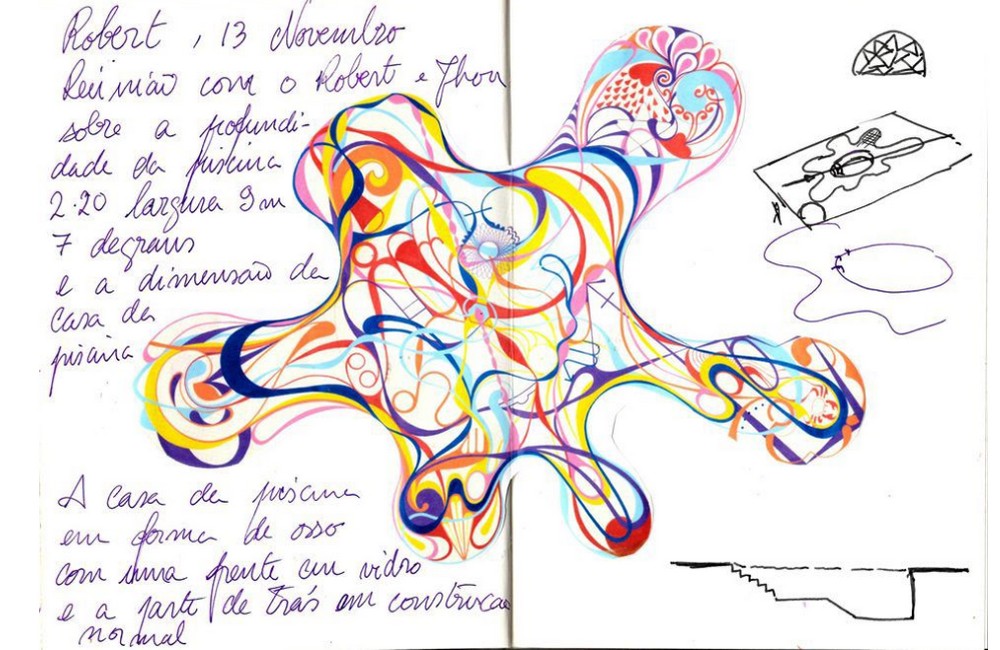 Robert, 13 Novembro
Reunião com o Robert e Jhon
sobre a profundi-
dade da piscina
2.20 largura 9m
7 degraus
e a dimensão da
casa da
piscina
A casa da piscina
em forma de osso
com uma frente em vidro
e a parte de trás em construcao
normal